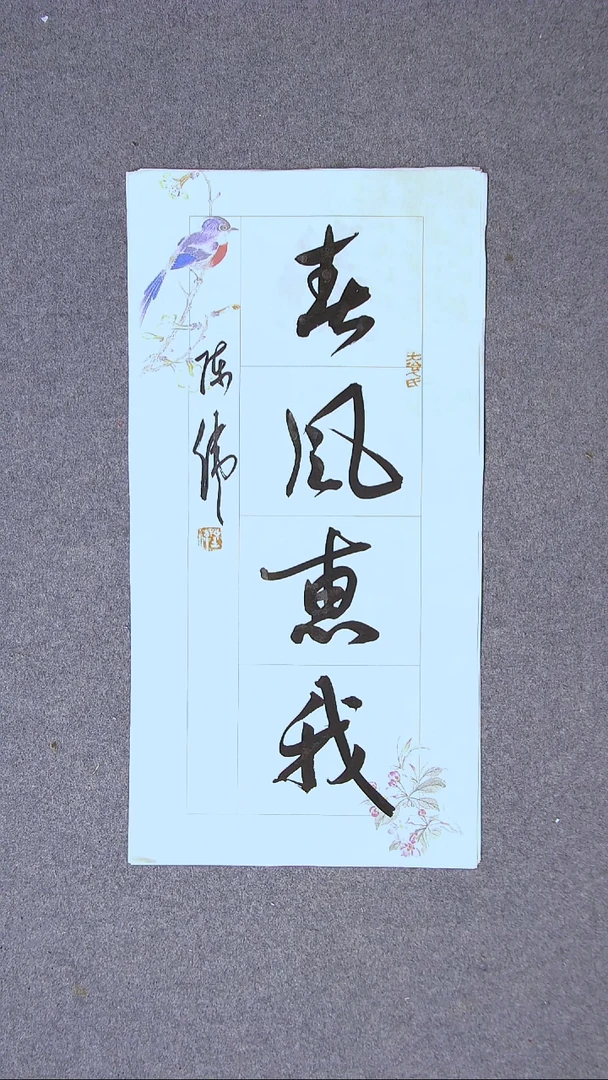 春风惠我
陈伟